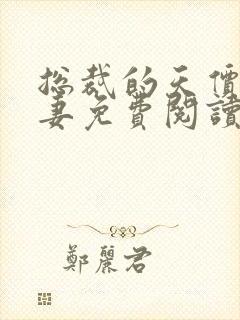 總裁的天價
妻免費閱讀
鄭麗君